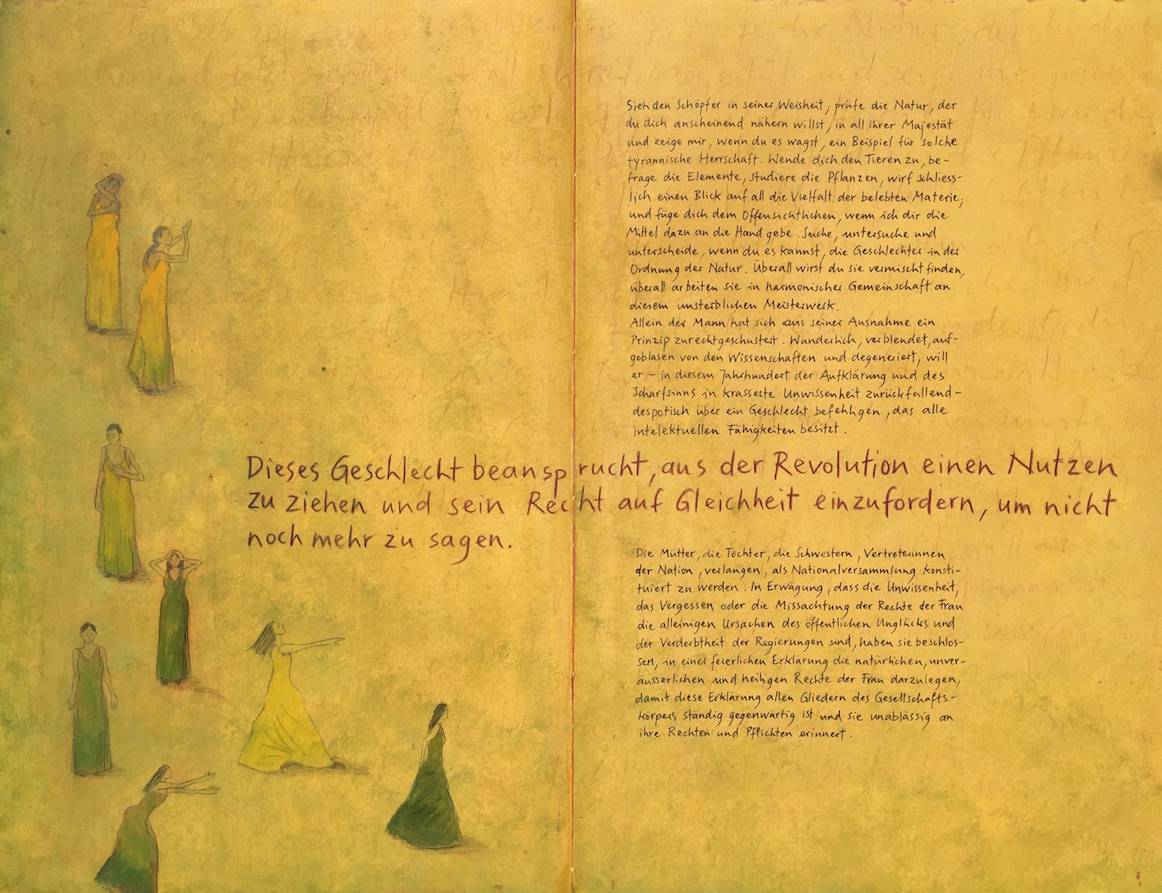 Sieh den Schöpfer in seiner Weisheit, prüfe die Natur, der
du dich anscheinend nähern willst, in all ihrer Majestät
und zeige mir, wenn du es wagst, ein Beispiel für solche
tyrannische Herrschaft. Wende dich den Tieren zu, be-
frage die Elemente, studiere die Pflanzen, wirf schliess-
lich einen Blick auf all die Vielfalt der belebten Materie,
und füge dich dem Offensichtlichen, wenn ich dir die
Mittel dazu an die Hand gebe. Suche, untersuche und
unterscheide, wenn du es kannst, die Geschlechter in der
Ordnung der Natur. Überall wirst du sie vermischt finden,
überall arbeiten sie in harmonischer Gemeinschaft an
diesem unsterblichen Meisterwerk.
Allein der Mann hat sich aus seiner Ausnahme ein
Prinzip zurechtgeschustert. Wunderlich, verblendet, auf-
geblasen von den Wissenschaften und degeneriert, will
er – in diesem Jahrhundert der Aufklärung und des
Scharfsinns in krasseste Unwissenheit zurückfallend –
despotisch über ein Geschlecht befehligen, das alle
intelektuellen Fähigkeiten besitzt.
Dieses Geschlecht beansprucht, aus der Revolution einen Nutzen
zu ziehen und sein Recht auf Gleichheit einzufordern, um nicht
noch mehr zu sagen.
Die Mütter, die Töchter, die Schwestern, Vertreterinnen
der Nation, verlangen, als Nationalversammlung konsti-
tuiert zu werden. In Erwägung, dass die Unwissenheit,
das Vergessen oder die Missachtung der Rechte der Frau
die alleinigen Ursachen des öffentlichen Unglücks und
der Verderbtheit der Regierungen sind, haben sie beschlos-
sen, in einer feierlichen Erklärung die natürlichen, unver-
äusserlichen und heiligen Rechte der Frau darzulegen,
damit diese Erklärung allen Gliedern des Gesellschafts-
körpers ständig gegenwärtig ist und sie unablässig an
ihre Rechten und Pflichten erinnert.